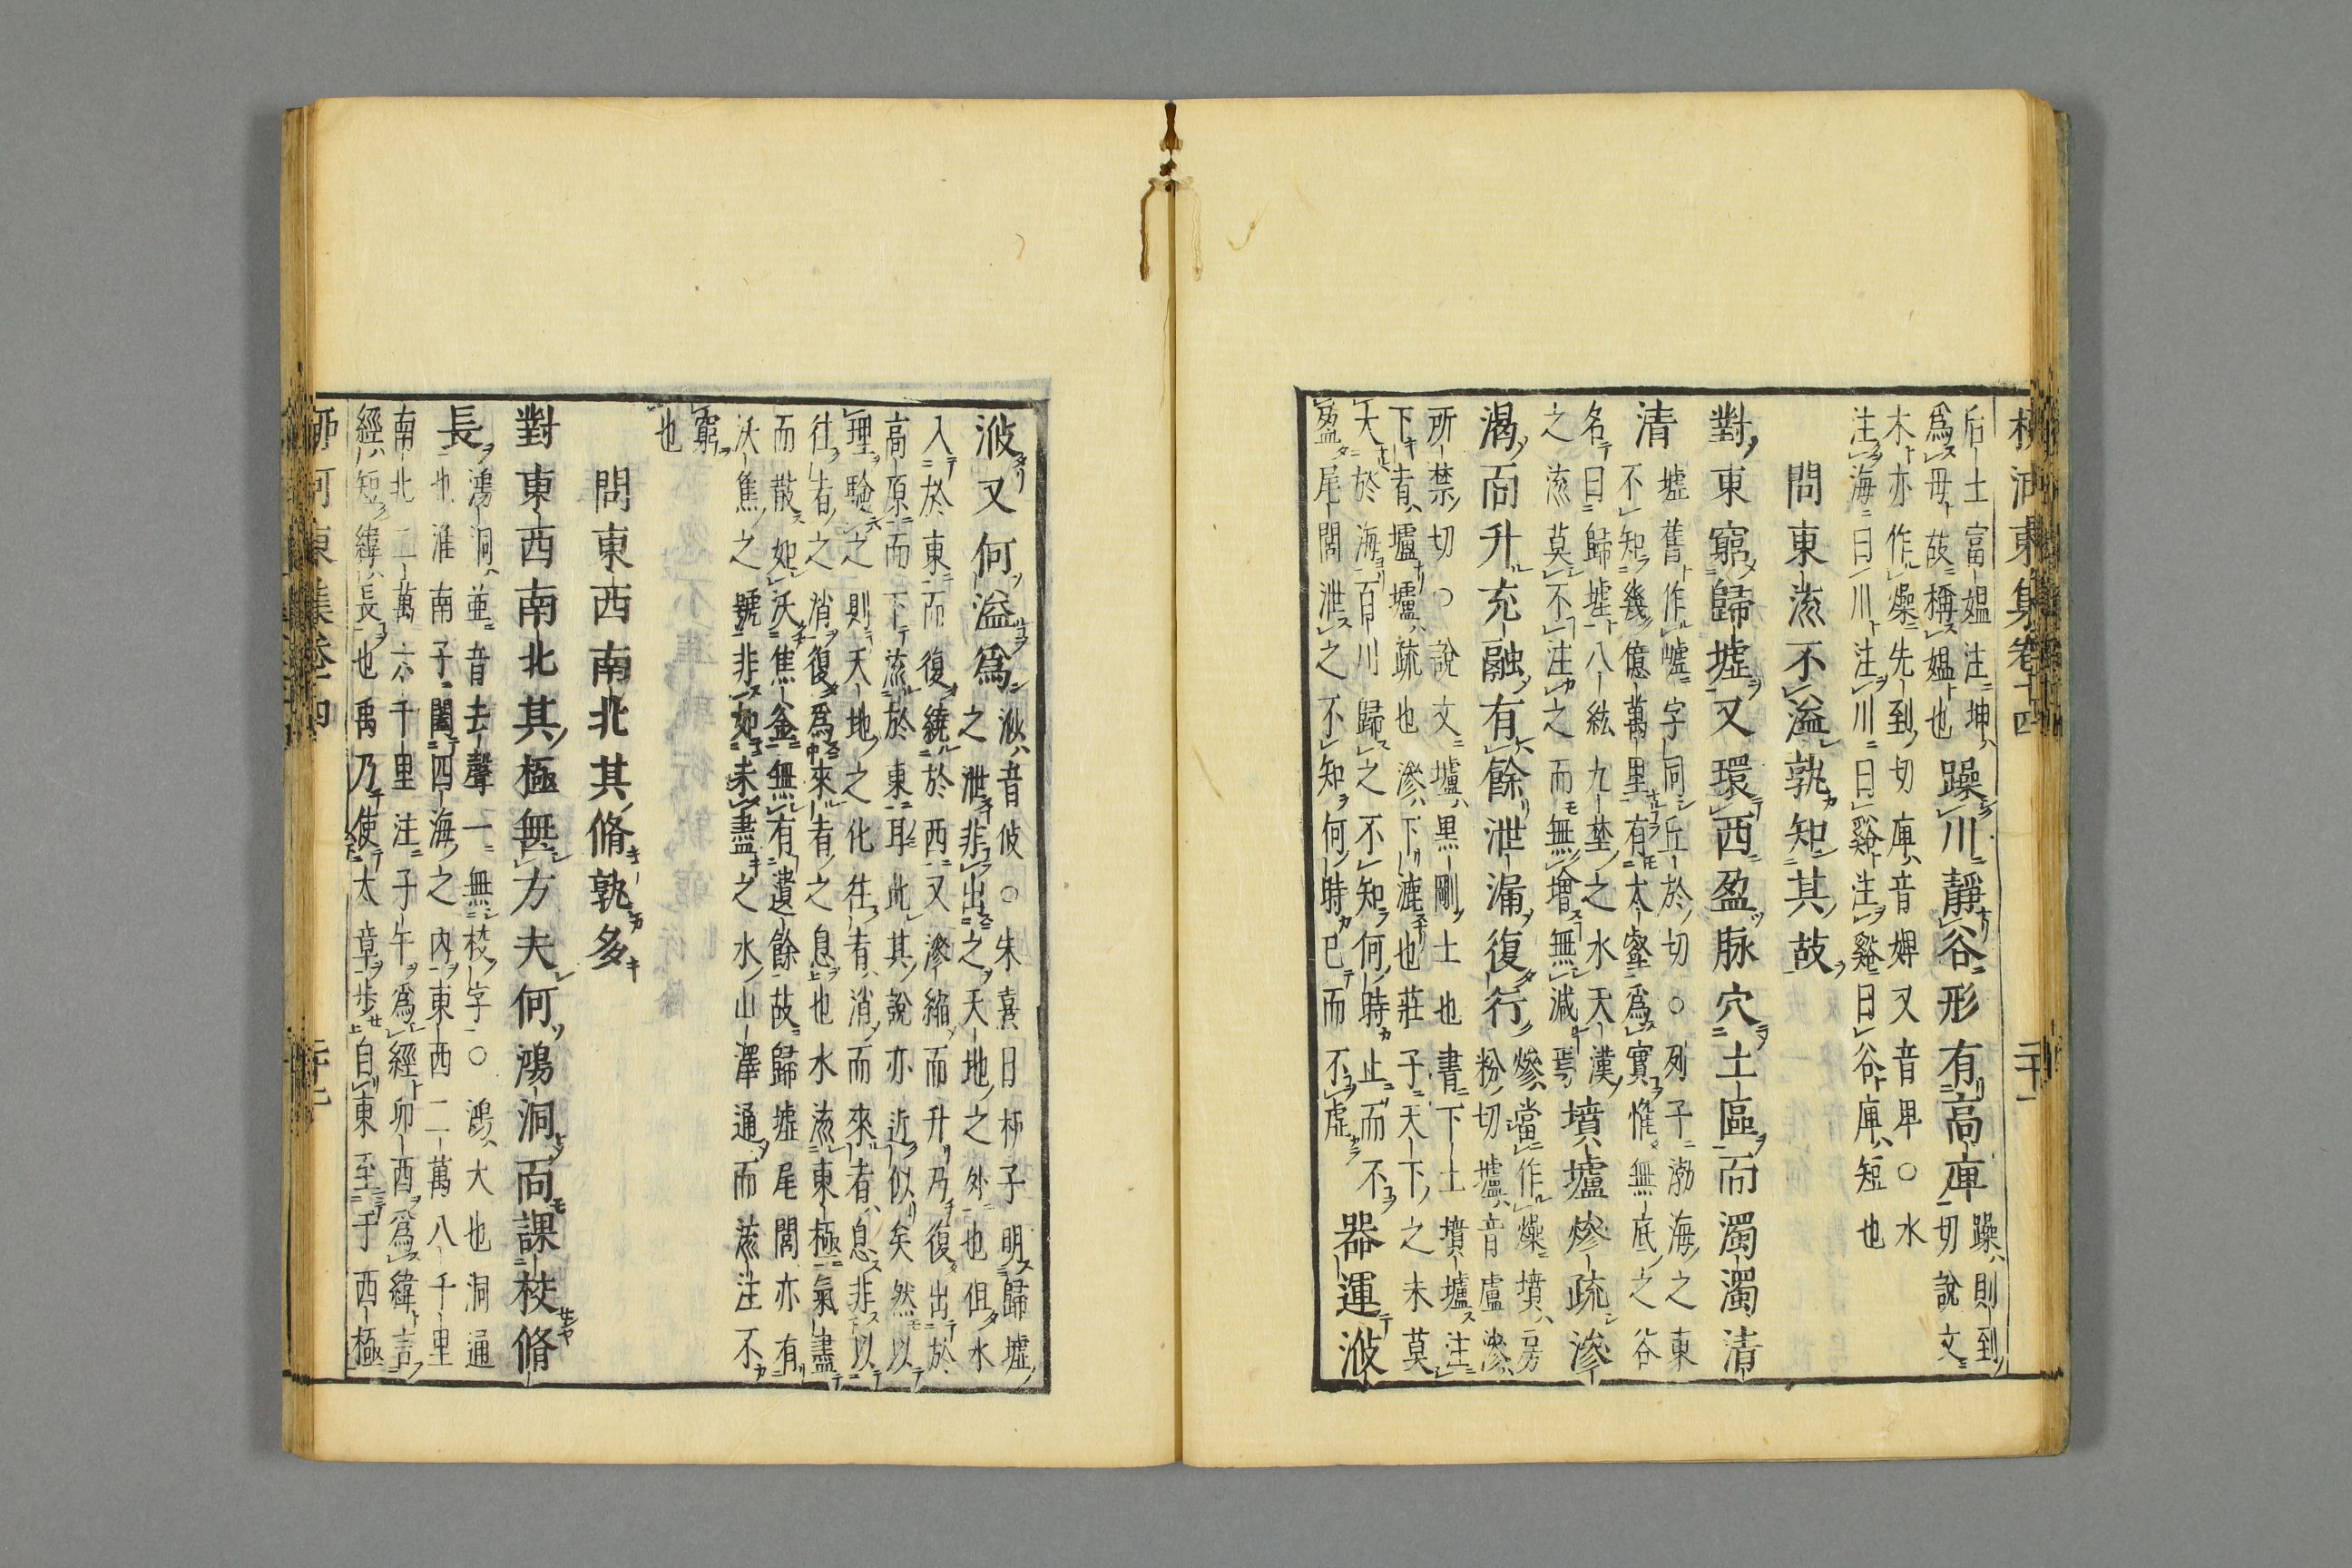 柳河東集卷十四
二十一
后土富媼注坤ハ
爲母故稱媼也
躁川靜谷形有高庳
躁ハ則到
切說文
木亦作燥先到切庳ハ音婢又音卑○水
注海曰川注川曰谿注谿曰谷庳ハ短也
問東流不溢孰知其故
對東窮歸墟又環西盈脉穴土區而濁濁清
清
墟舊作嘘字同丘於切○列子渤海之東
不知幾億萬里有大壑爲實惟無底之谷
名曰歸墟八紘九埜之水天漢
之流莫不注之而無增無減焉
墳壚燥疏滲
渴而升充融有餘泄漏復行
燥當作燥墳ハ房
粉切壚ハ音盧滲ハ
所禁切○說文壚ハ黒剛土也書下土墳壚注
下者壚壚ハ疏也滲ハ下漉也莊子天下之水莫
大於海百川歸之不知何時止而不
盈尾閭泄之不知何時已而不虚
器運浟
浟又何溢爲
浟ハ音攸○朱熹曰柳子明歸墟
之泄非出之天地之外也但水
入於東而復繞於西又滲縮而升乃復出於
高原而下流於東耳此其說亦近似矣然以
理驗之則天地之化往者消而來者息非以
往者之消復爲來者之息也水流東極氣盡
而散如沃焦釜無有遺餘故歸墟尾閭亦有
沃焦之號非如未盡之水山澤通而流注不
窮
也
問東西南北其脩孰多
對東西南北其極無方夫何鴻洞而課校脩
長
鴻洞ハ並音去聲一無校字○鴻ハ大也洞通
也淮南子闔四海之内東西二萬八千里
南北二萬六千里注子午爲經卯酉爲緯言
經ハ短緯ハ長也禹乃使大章步自東至于西極
柳河東集卷十四